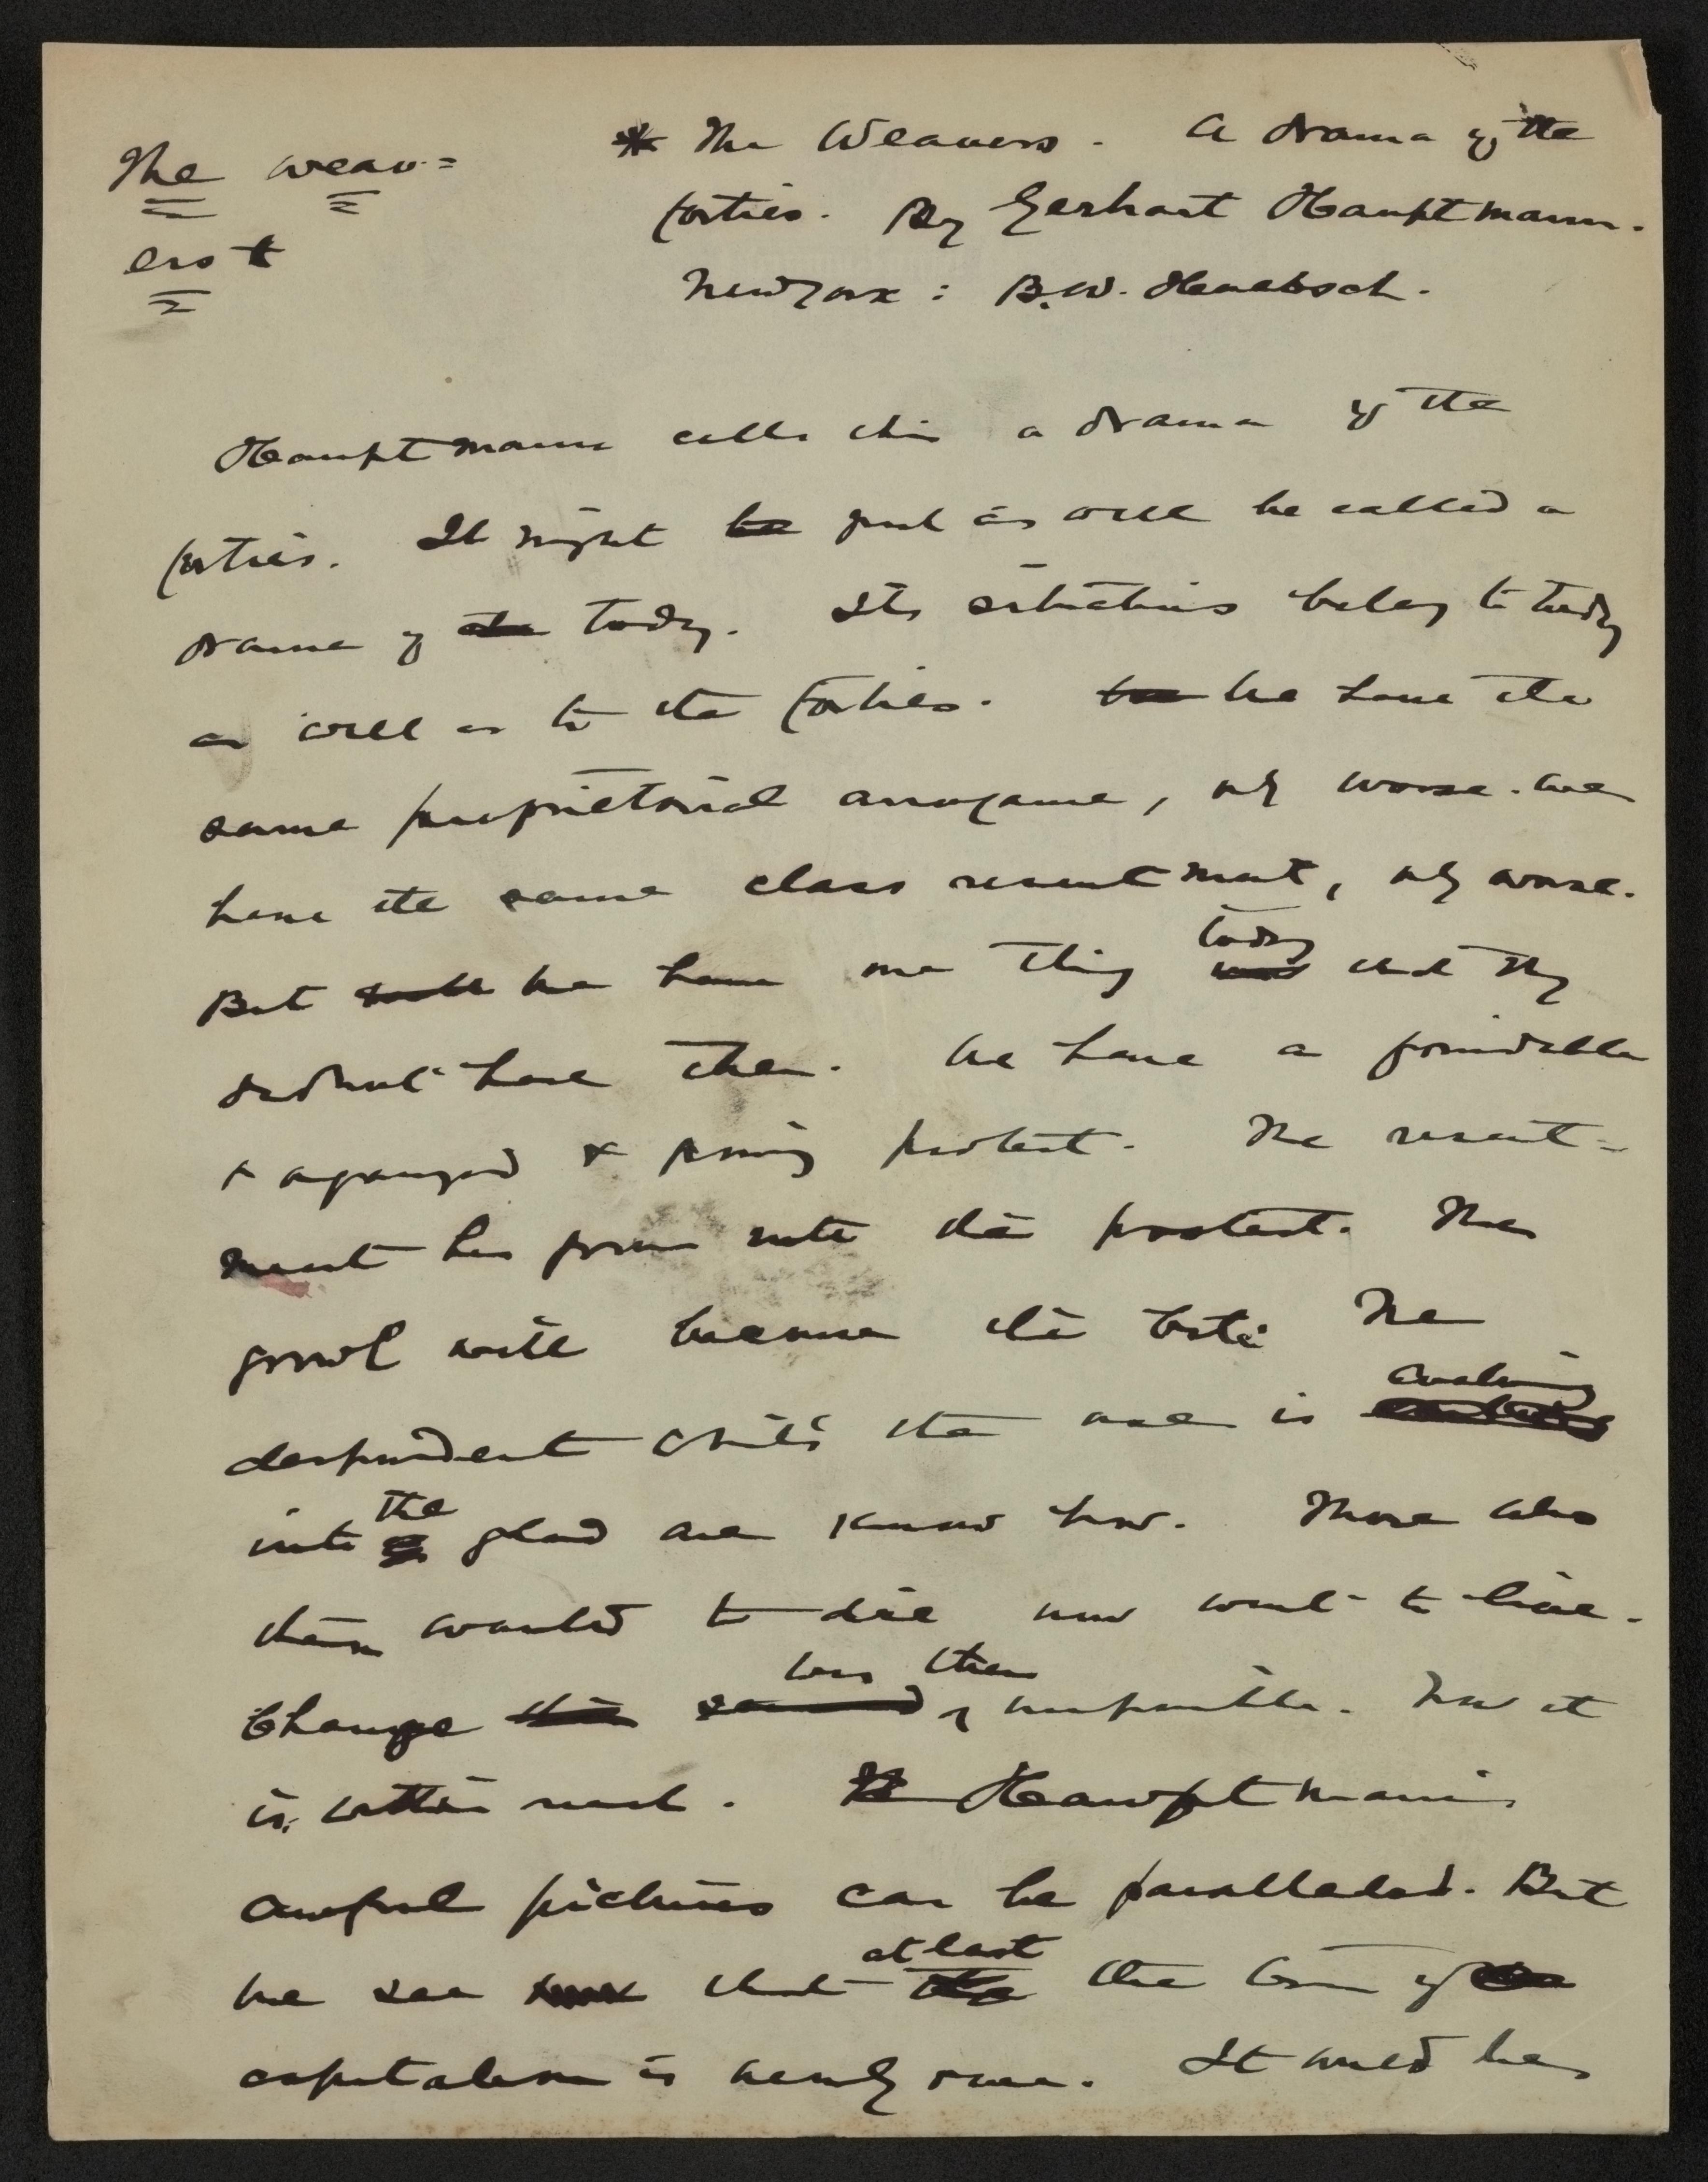 The weav=
ers*
* The Weavers. A drama of the
forties. By Gerhart Hauptmann.
New York: B. W. Huebsch.
Hauptmann calls this a drama of the
forties. It might be just as well be called a
drama of the today. Its situations belong to today
as well as to the forties. We have the
same proprietorial arrogance, only worse. We
have the same class resentment, only worse.
But we have one thing today that they
didnt have then. We have a formidable
& organized & growing protest. The resent=
ment has grown into the protest. The
growl will become the bite. The
despondent child the ... is evolving
into the glad ... know how. Those who
then wanted to die now want to live.
Change was then impossible. Now it
is within reach. Hauptmann's
awful pictures can be paralleled. But
we see that at last the term of
capitalism is nearly over. It would be